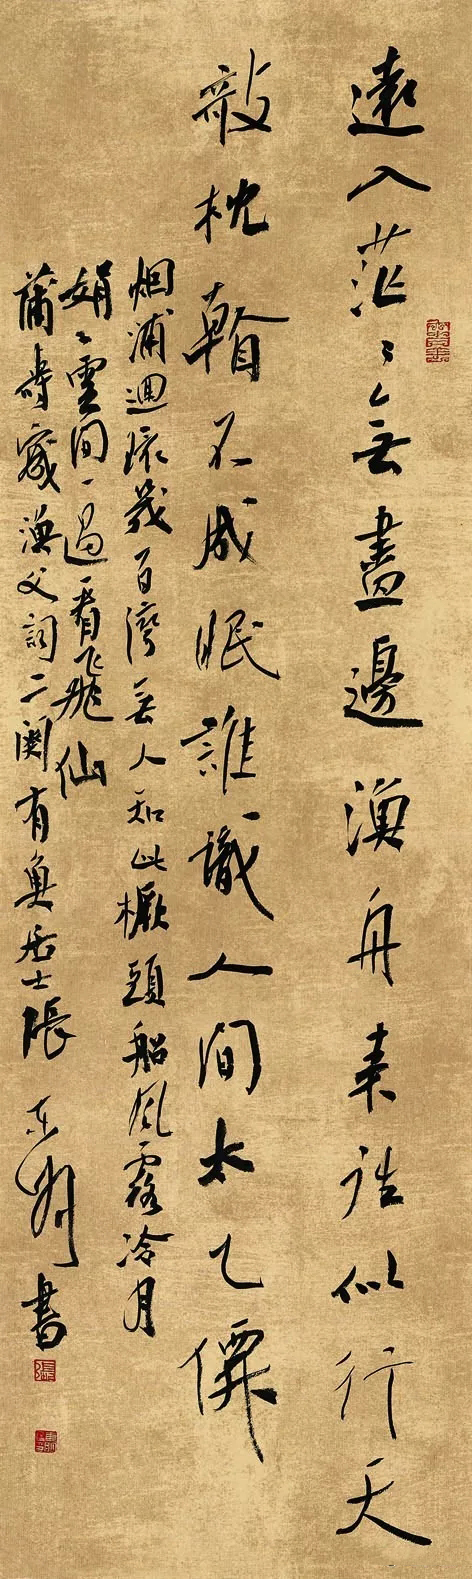 遠入茫々无盡邊漁舟来往似行天
敧枕不成眠誰識人間太乙僊
烟浦迴環幾百灣无人知此橛頭船風露冷月
娟々雲間一過看飛仙
蒲壽宬漁父詞二闋有魚居士張東書